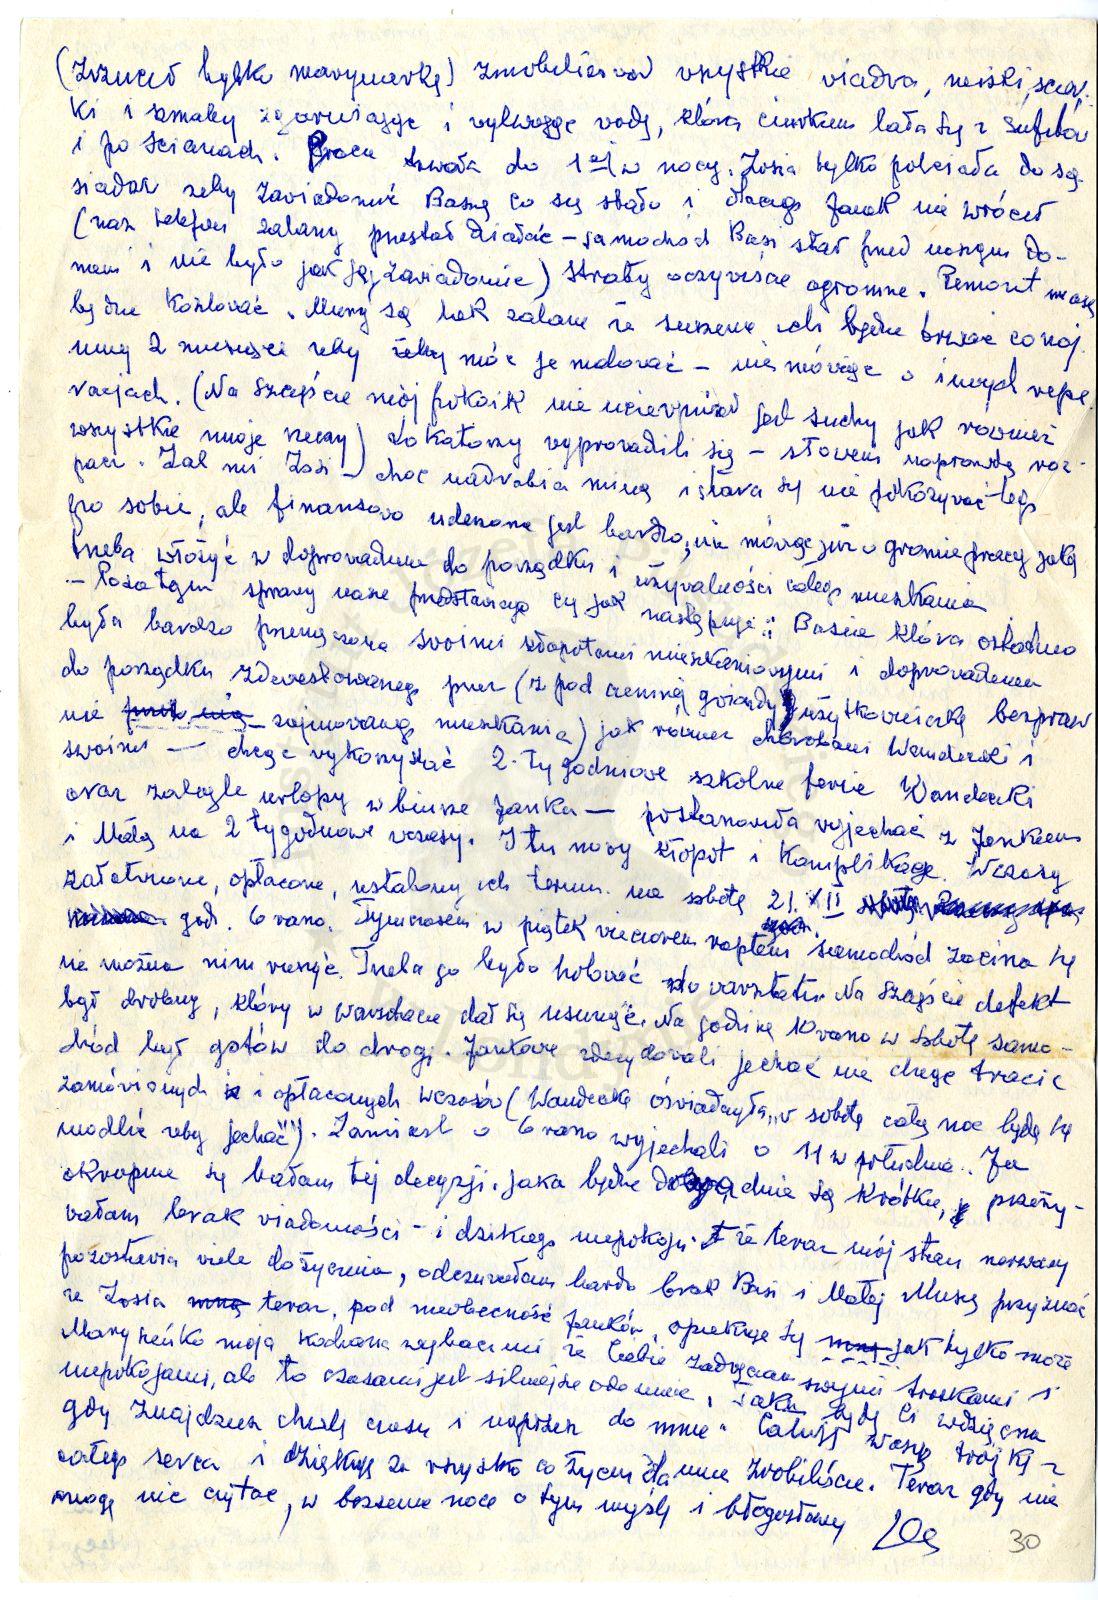 (zrzucił tylko marynarkę) zmobilizował wszystkie wiadra, miski, ścier-
ki i szmaty zgarniając i wylewając wodę, która ciurkiem lała się z sufitów
i po ścianach. Praca trwała do 1ej w nocy. Zosia tylko poleciała do są-
siadów żeby zawiadomić Basię co się stało i dlaczego Janek nie wrócił
(nasz telefon zalany przestał działać – samochód Basi stał przed naszym do-
mem i nie było jak jej zawiadomić) straty oczywiście ogromne. Remont masę
będzie kosztować. Mury są tak zalane że suszenie ich będzie trwać co naj
mniej 2 miesiące żeby żeby móc je malować – nie mówiąc o innych repe
racjach. (Na szczęście mój pokoik nie ucierpiał jest suchy jak również
wszystkie moje rzeczy) Lokatorzy wyprowadzili się – słowem naprawdę roz-
pacz. Żal mi Zosi – choć nadrabia miną i stara się nie pokazywać tego
po sobie, ale finansowo uderzona jest bardzo, nie mówiąc już o gromie pracy jaką
trzeba włożyć w doprowadzenie do porządku i używalności całego mieszkania
– Poza tym sprawy nasze przedstawiają się jak następuje: Basia która ostatnio
była bardzo przemęczona swoimi kłopotami mieszkaniowymi i doprowadzeniem
do porządku zdewastowanego przez (z pod ciemnej gwiazdy) użytkowniczkę bezpraw
nie zajmowanego mieszkania) jak również chorobami Wandeczki i
swoimi — chcąc wykorzystać 2-tygodniowe szkolne ferie Wandeczki
oraz zaległe urlopy w biurze Janka — postanowiła wyjechać z Jankiem
i Małą na 2 tygodniowe wczasy. I tu nowy kłopot i komplikacje. Wczasy
załatwione, opłacone, ustalony ich termin na sobotę 21.XII
god. 6 rano. Tymczasem w piątek wieczorem raptem samochód zacina się
nie można nim ruszyć. Trzeba go było holować do warsztatu. Na szczęście defekt
był drobny, który w warsztacie dał się usunąć. Na godzinę rano w sobotę samo-
chód był gotów do drogi. Jankowie zdecydowali jechać nie chcąc tracić
zamówionych i opłaconych wczasów (Wandeczka oświadczyła „w sobotę całą noc będę się
modlić żeby jechać"). Zamiast o 6 rano wyjechali o 11 w południe. Ja
okropnie się bałam tej decyzji. jaka będzie droga, dnie są krótkie, przeży-
wałam brak wiadomości – i dzikiego niepokoju. że teraz mój stan nerwowy
pozostawia wiele do życzenia, odczuwałam bardzo brak Basi i Małej Muszę przyznać
że Zosia teraz, pod nieobecność Janków, opiekuje się jak tylko może
Maryneńko moja kochana wybacz mi że Ciebie zadręczam swymi troskami i
niepokojami, ale to czasami jest silniejsze ode mnie. Jaka będę Ci wdzięczna
gdy znajdziesz chwilę czasu i napiszesz do mnie. Całuję Waszą trójkę z
całego serca i dziękuję za wszystko co Życiu dla mnie zrobiliście. Teraz gdy nie
mogę nic czytać, w bezsenne noce o tym myślę i błogosławię
30